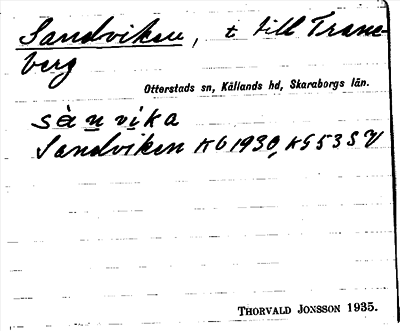 Sandviken, t till Trane-
berg
Otterstads sn, Kållands hd, Skaraborgs län.
sànvika
Sandviken KG 1930, KG 53 SV
THORVALD JONSSON 1935.